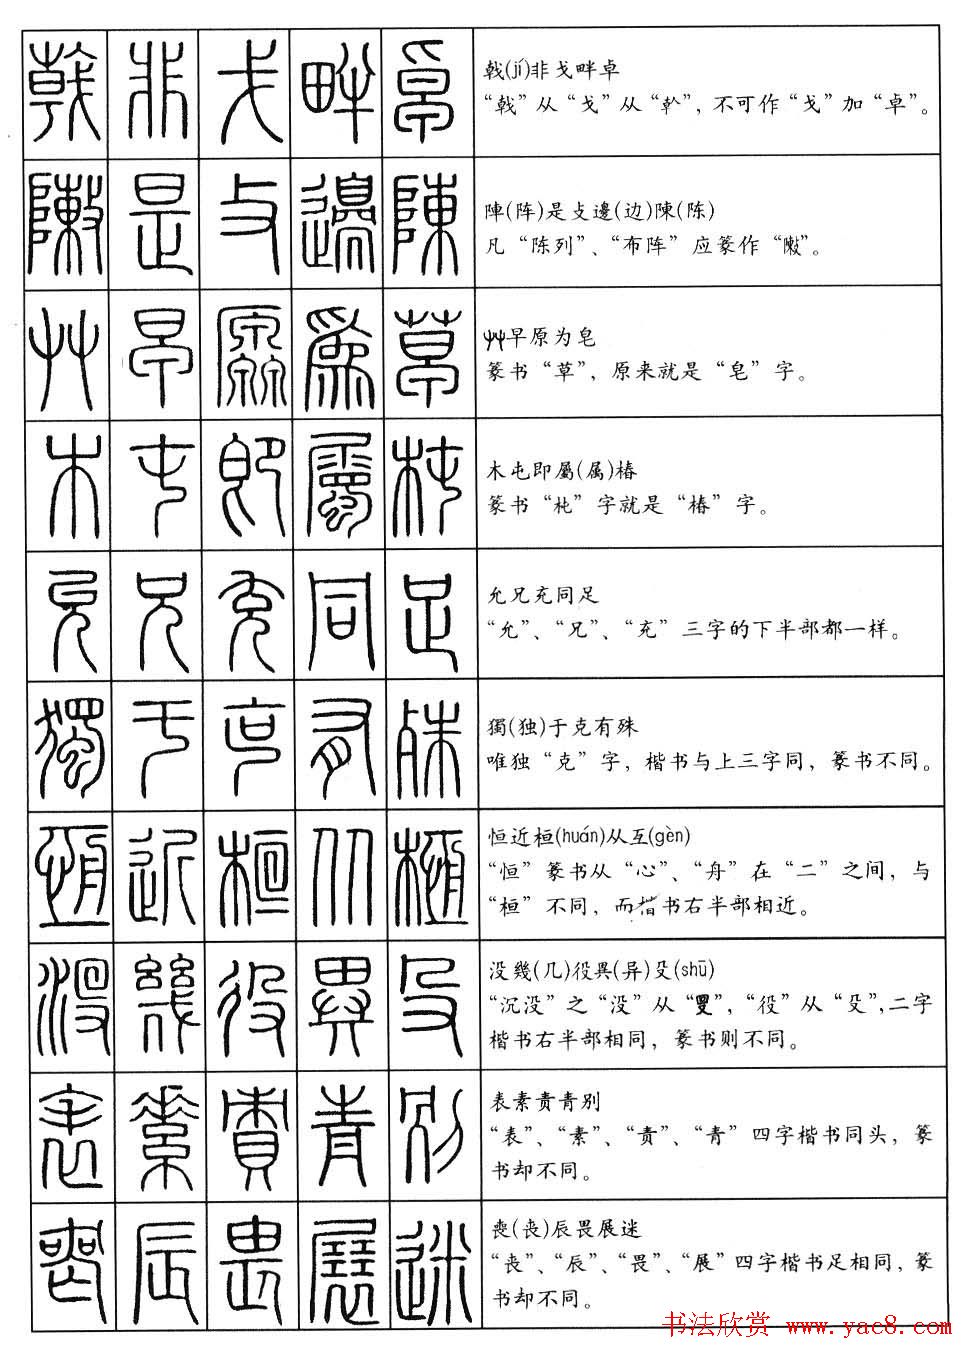 戟非戈畔卓
戟(jí)非戈畔卓
“戟”从“戈”从“倝”，不可作“戈”加“卓”。
敶是攴邊陳
陣(阵)是攴邊(边)陳(陈)
凡“陈列”、“布阵”应篆作“敶”。
艸早原为草
艸早原为皂
篆书“草”，原来就是“皂”字。
木屯即屬杶
木屯即屬(属)椿
篆书“杶”字就是“椿”字。
允兄充同足
允兄充同足
“允”、“兄”、“充”三字的下半部都一样。
獨于克有殊
獨(独)于克有殊
唯独“克”字，楷书与上三字同，篆书不同。
恒近桓从
恒近桓(huán)从亙(gèn)
“恒”篆书从“心”、“舟”在“二”之间，与
“桓”不同，而楷书右半部相近。
没幾役異殳
没幾(几)役異(异)殳(shū)
“沉没”之“没”从“𠬸”，“役”从“殳”，二字
楷书右半部相同，篆书则不同。
表素責青別
表素责青别
“表”、“素”、“责”、“青”四字楷书同头，篆
书却不同。
喪辰畏展迷
喪(丧)辰畏展迷
“丧”、“辰”、“畏”、“展”四字楷书足相同，篆
书却不同。
书法欣赏 www.yac8.com